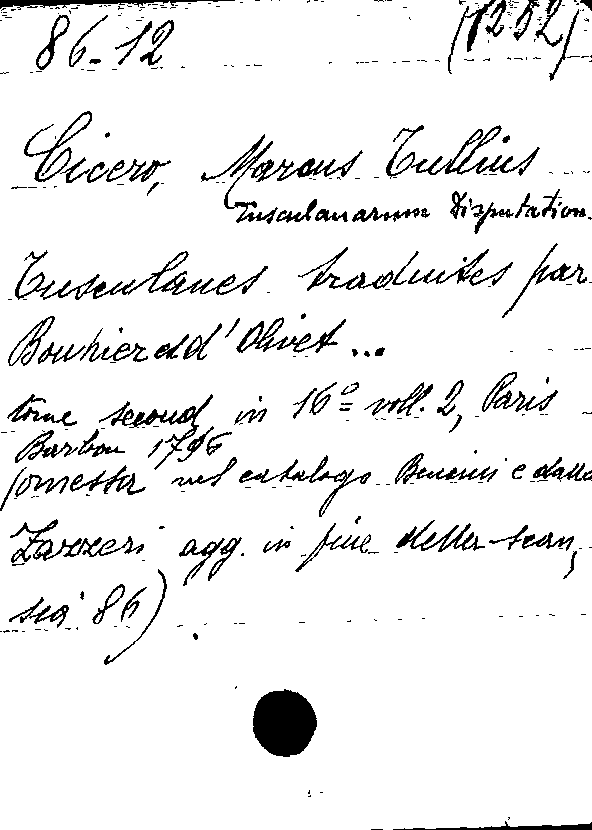 86-12 (1252)
Cicero, Marcus Tullius
Tusculanarum Disputation.
Tusculanes traduites par
Bouhier et d'Olivet ...
tome second in 16º voll. 2, Paris
Barbou 1796
(omessa nel catalogo Bencini e dalla
Zazzeri agg. in fine della scan,
sia 86)